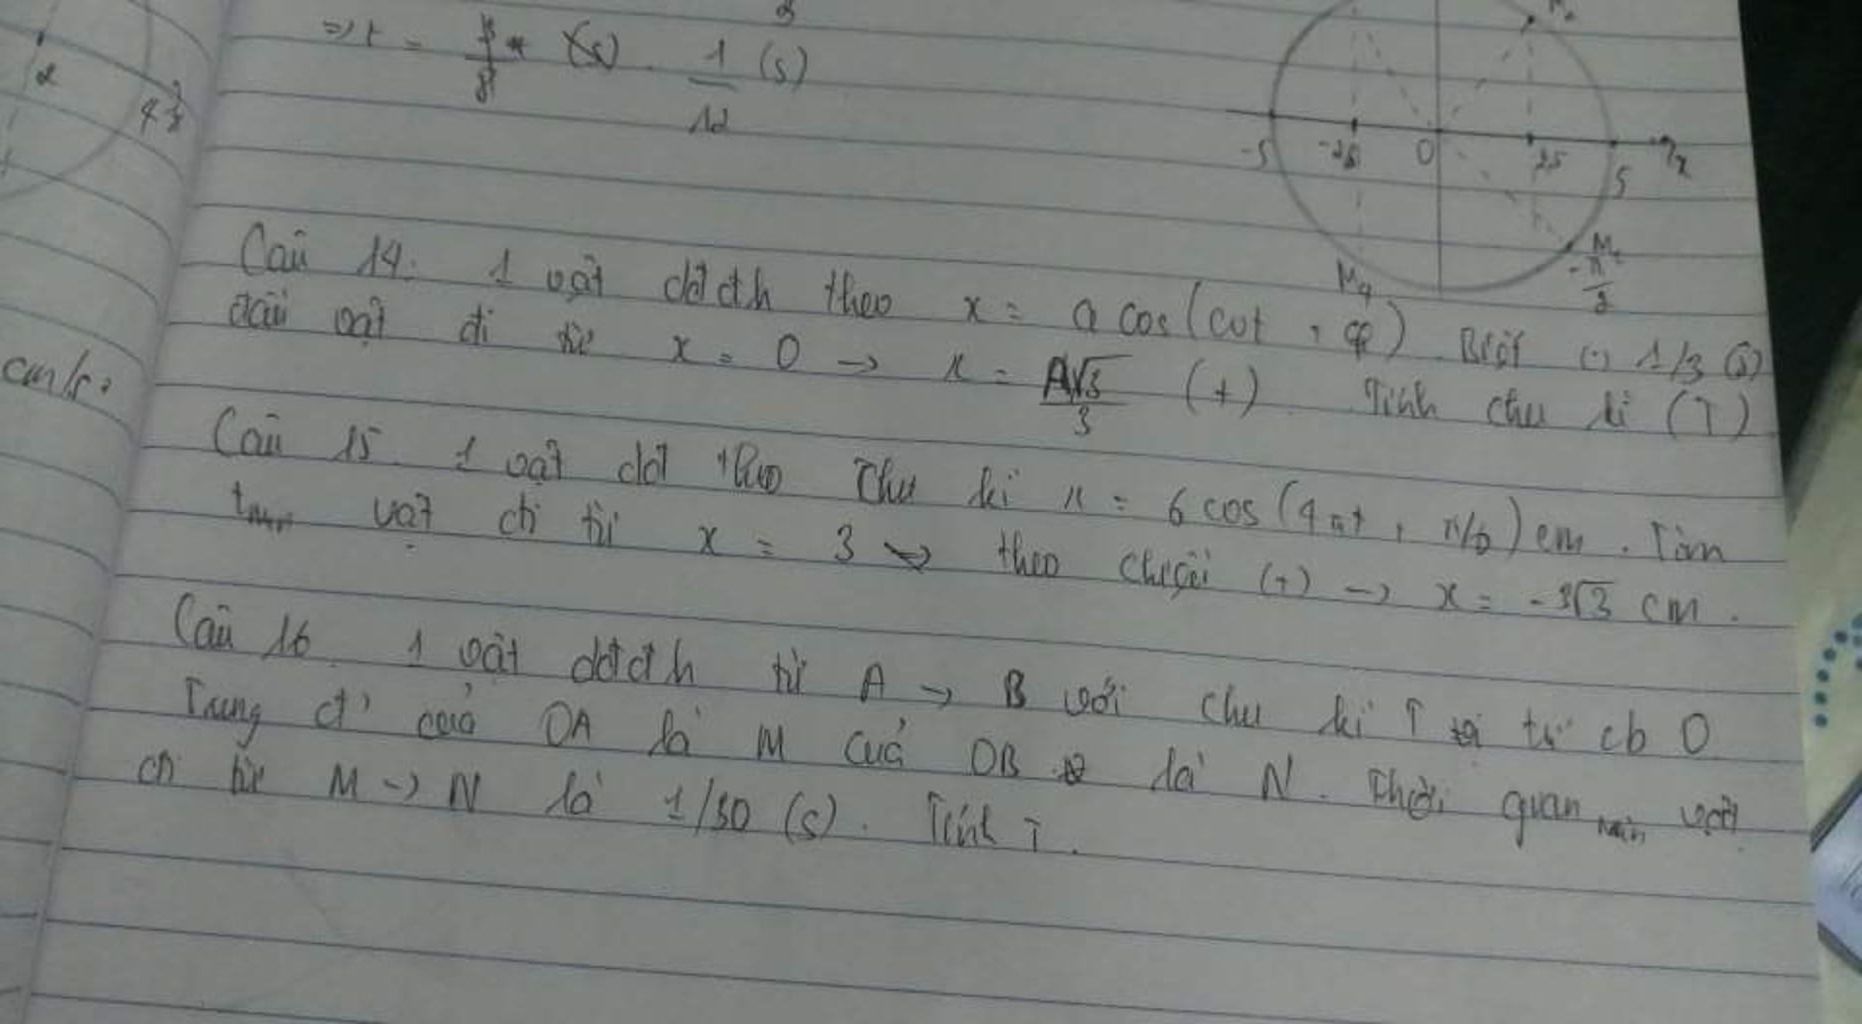 => t = (s) 1/12 (s)
-5 -2,5 0 2,5 5 x
M₄
-π/3
cm/s.
Câu 14. 1 vật dđđh theo x = a cos(ωt + φ) Biết (-) 1/3 (s)
đầu vật đi từ x = 0 → x = A√3/3 (+). Tính chu kì (T)
Câu 15. 1 vật dđ theo Chu kì x = 6 cos(4πt + π/6) cm. Tìm
tmin vật đi từ x = 3 theo chiều (+) → x = -3√3 cm.
Câu 16. 1 vật dđđh từ A → B với chu kì T từ cb O
Trung đ' của OA là M của OB là N. Thời quan min vật
đi từ M → N là 1/30 (s). Tính T.